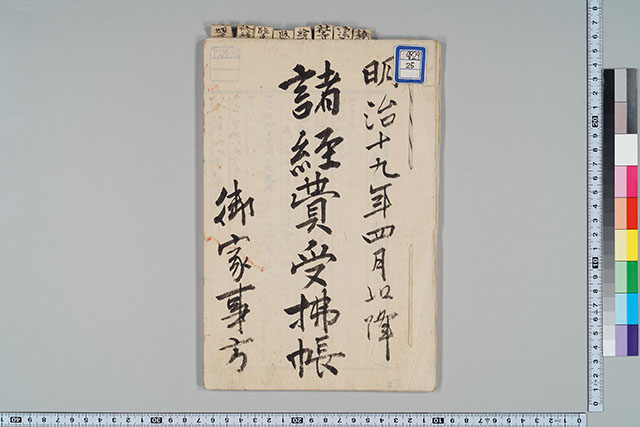 明治十九年四月以降
諸経費受拂帳
御家事方
4829
25